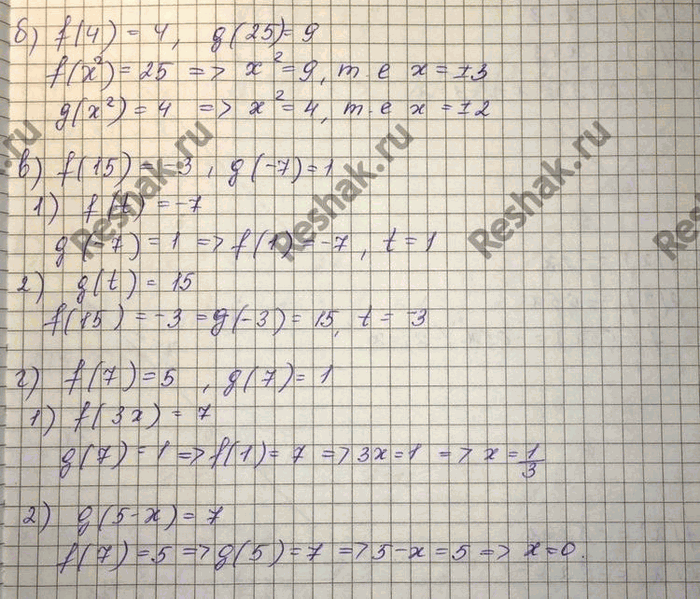 б) f(4) = 4, g(25) = 9
f(x²) = 25 => x² = 9, т.е x = ±3
g(x²) = 4 => x² = 4, т.е x = ±2
в) f(15) = -3, g(-7) = 1
1) f(t) = -7
g(-7) = 1 => f(1) = -7, t = 1
2) g(t) = 15
f(15) = -3 = g(-3) = 15, t = -3
г) f(7) = 5, g(7) = 1
1) f(3x) = 7
g(7) = 1 => f(1) = 7 => 3x = 1 => x = 1/3
2) g(5-x) = 7
f(7) = 5 => g(5) = 7 => 5-x = 5 => x = 0.
Reshak.ru
Reshak.ru
Reshak.ru